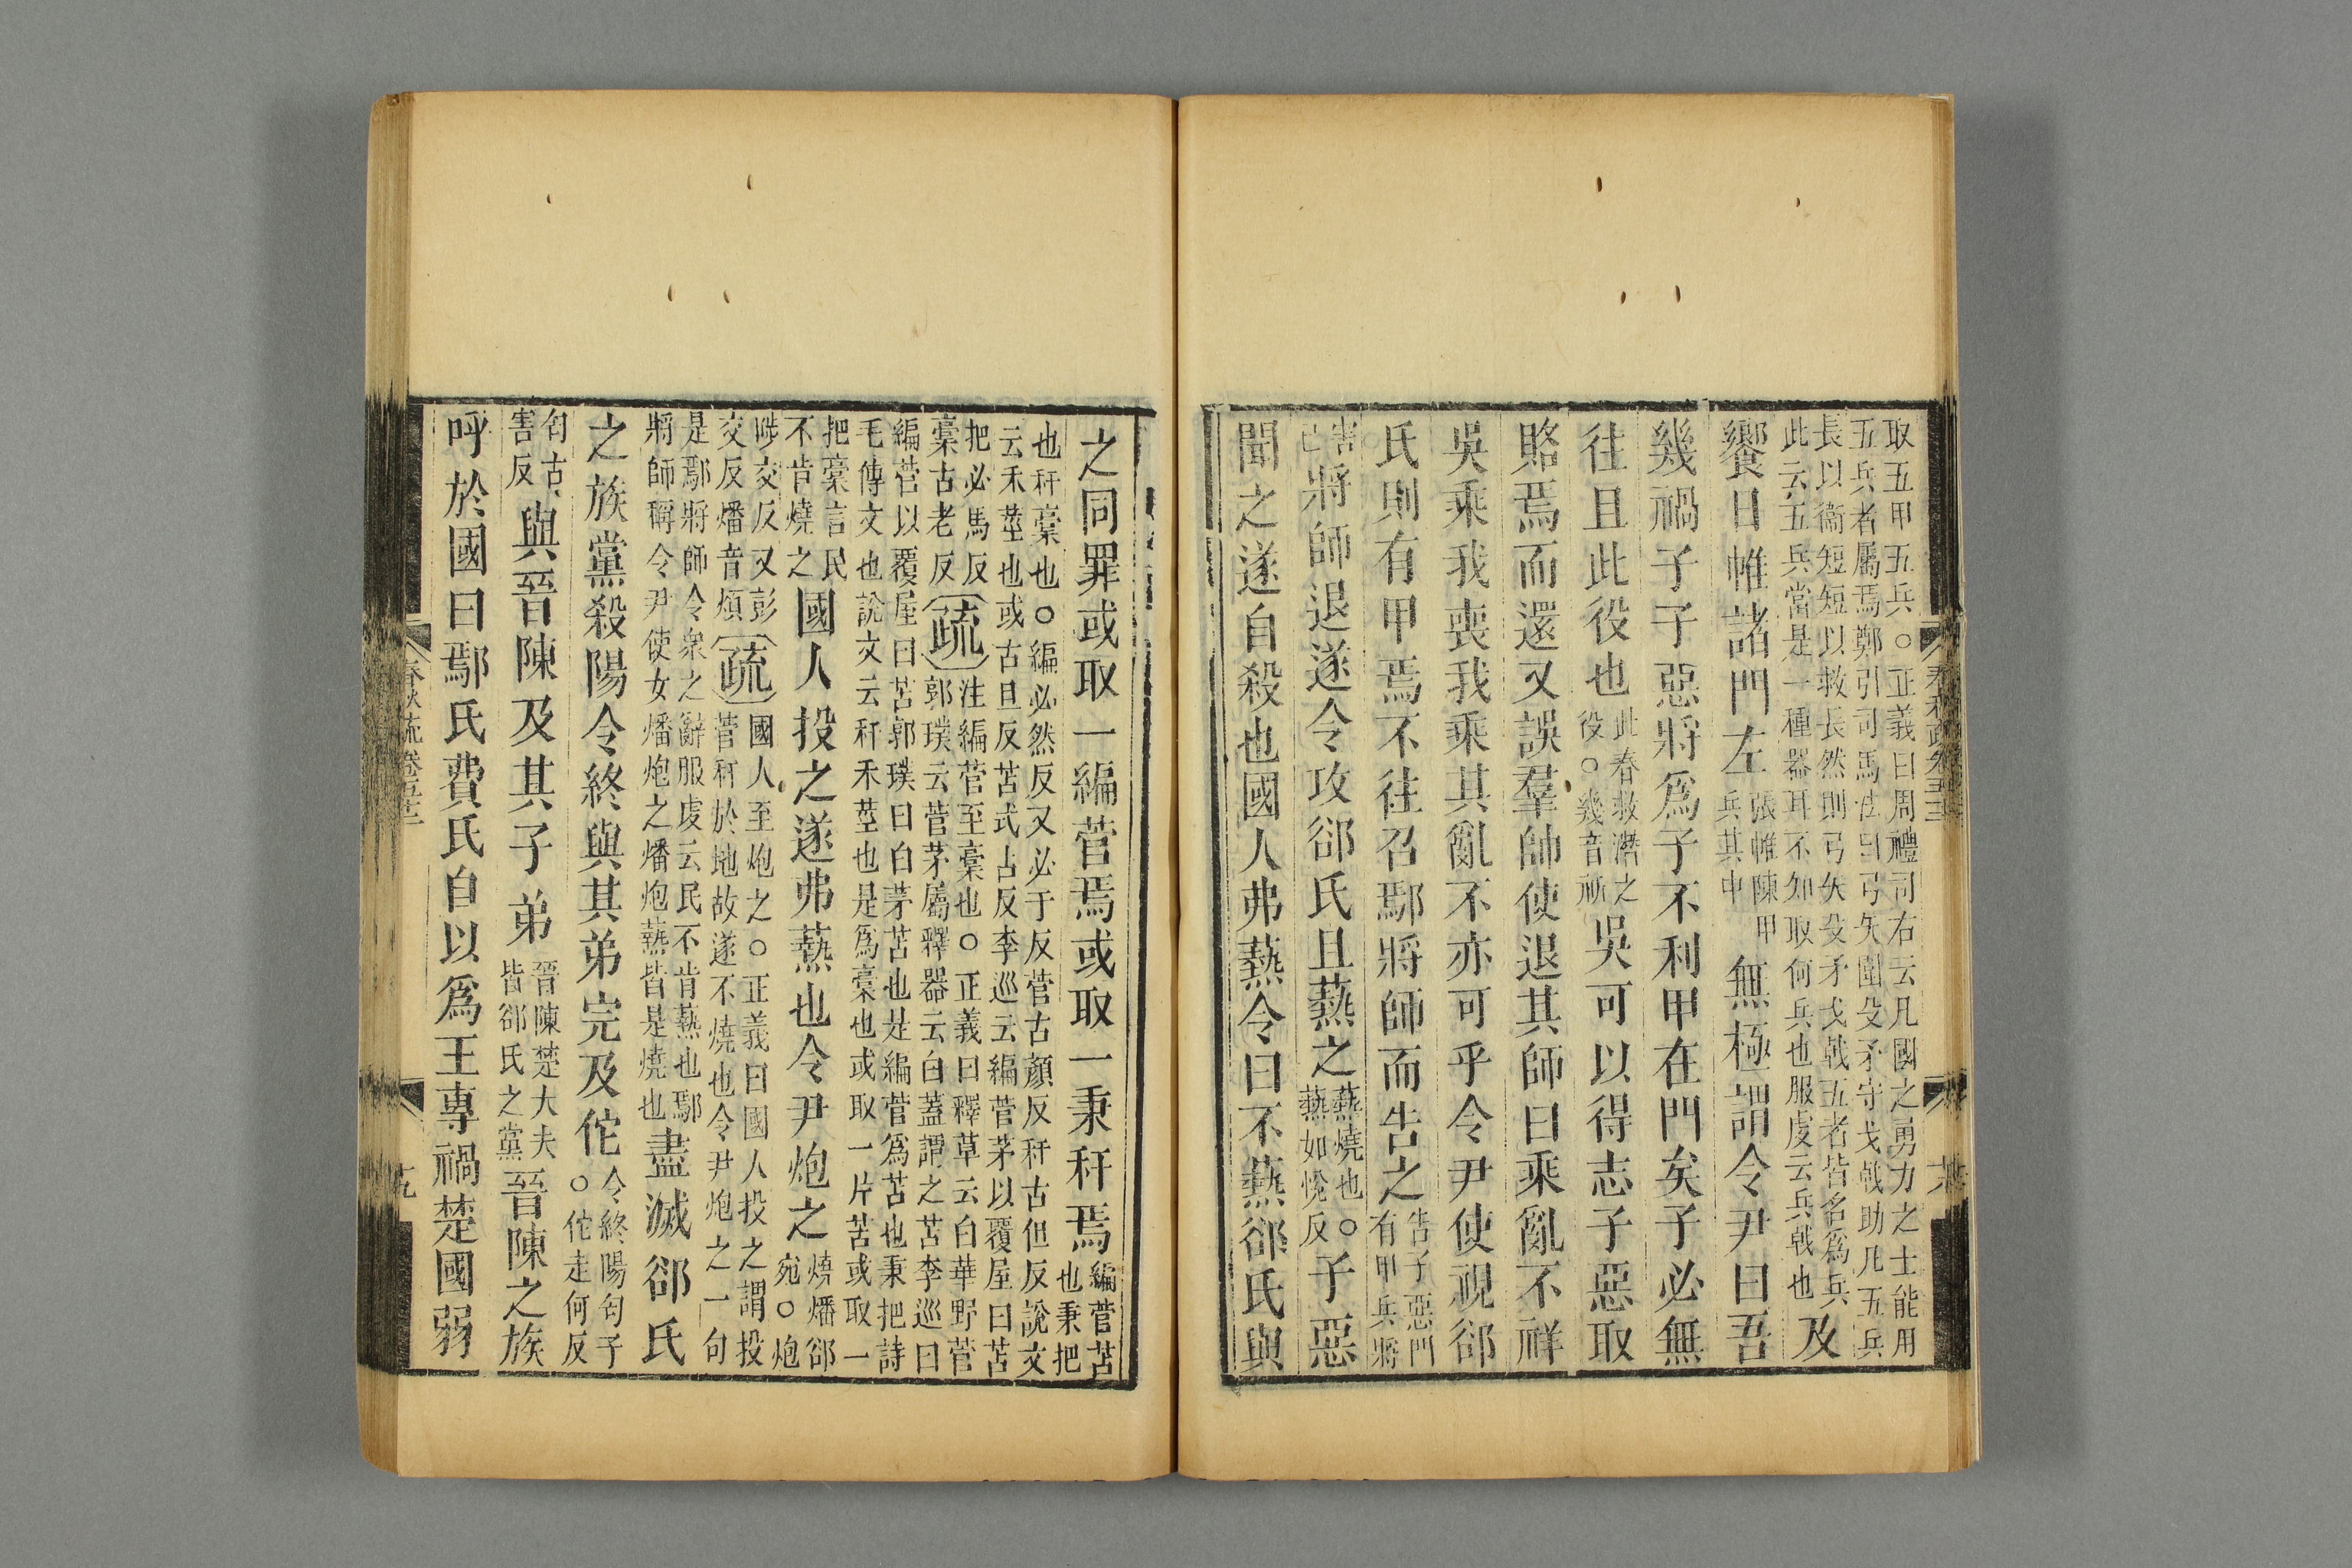 取五甲五兵○正義曰周禮司右云凡國之勇力之士能用
五兵者屬焉鄭引司馬法曰弓矢圍殳矛守戈戟助凡五兵
長以衞短短以救長然則弓矢殳矛戈戟五者皆名爲兵
此云五兵當是一種器耳不知取何兵也服虔云兵戟也
及
饗日帷諸門左
張帷陳甲
兵其中
無極謂令尹曰吾
幾禍子子惡將爲子不利甲在門矣子必無
往且此役也
此春救潛之
役○幾音祈
吳可以得志子惡取
賂焉而還又誤羣帥使退其師曰乘亂不祥
吳乘我喪我乘其亂不亦可乎令尹使視郤
氏則有甲焉不往召鄢將師而告之
告子惡門
有甲兵將
害
己
將師退遂令攻郤氏且爇之
爇燒也○
爇如悅反
子惡
聞之遂自殺也國人弗爇令曰不爇郤氏與
春秋疏卷五十二
之同罪或取一編菅焉或取一秉秆焉
編菅苫
也秉把
也秆稾也○編必然反又必于反菅古顏反秆古但反說文
云禾莖也或古旦反苫式占反李巡云編菅茅以覆屋曰苫
把必馬反
稾古老反
疏
注編菅至稾也○正義曰釋草云白華野菅
郭璞云菅茅屬釋器云白蓋謂之苫李巡曰
編菅以覆屋曰苫郭璞曰白茅苫也是編菅爲苫也秉把詩
毛傳文也說文云秆禾莖也是爲稾也或取一片苫或取一
把稾言民
不肯燒之
國人投之遂弗爇也令尹炮之
燒燔郤
宛○炮
𣥺交反又彭
交反燔音煩
疏
國人至炮之○正義曰國人投之謂投
菅秆於地故遂不燒也令尹炮之一句
是鄢將師令衆之辭服虔云民不肯爇也鄢
將師稱令尹使女燔炮之燔炮爇皆是燒也
盡滅郤氏
之族黨殺陽令終與其弟完及佗
令終陽匄子
○佗走何反
匄古
害反
與晉陳及其子弟
晉陳楚大夫
皆郤氏之黨
晉陳之族
呼於國曰鄢氏費氏自以爲王專禍楚國弱
春秋疏卷五十二